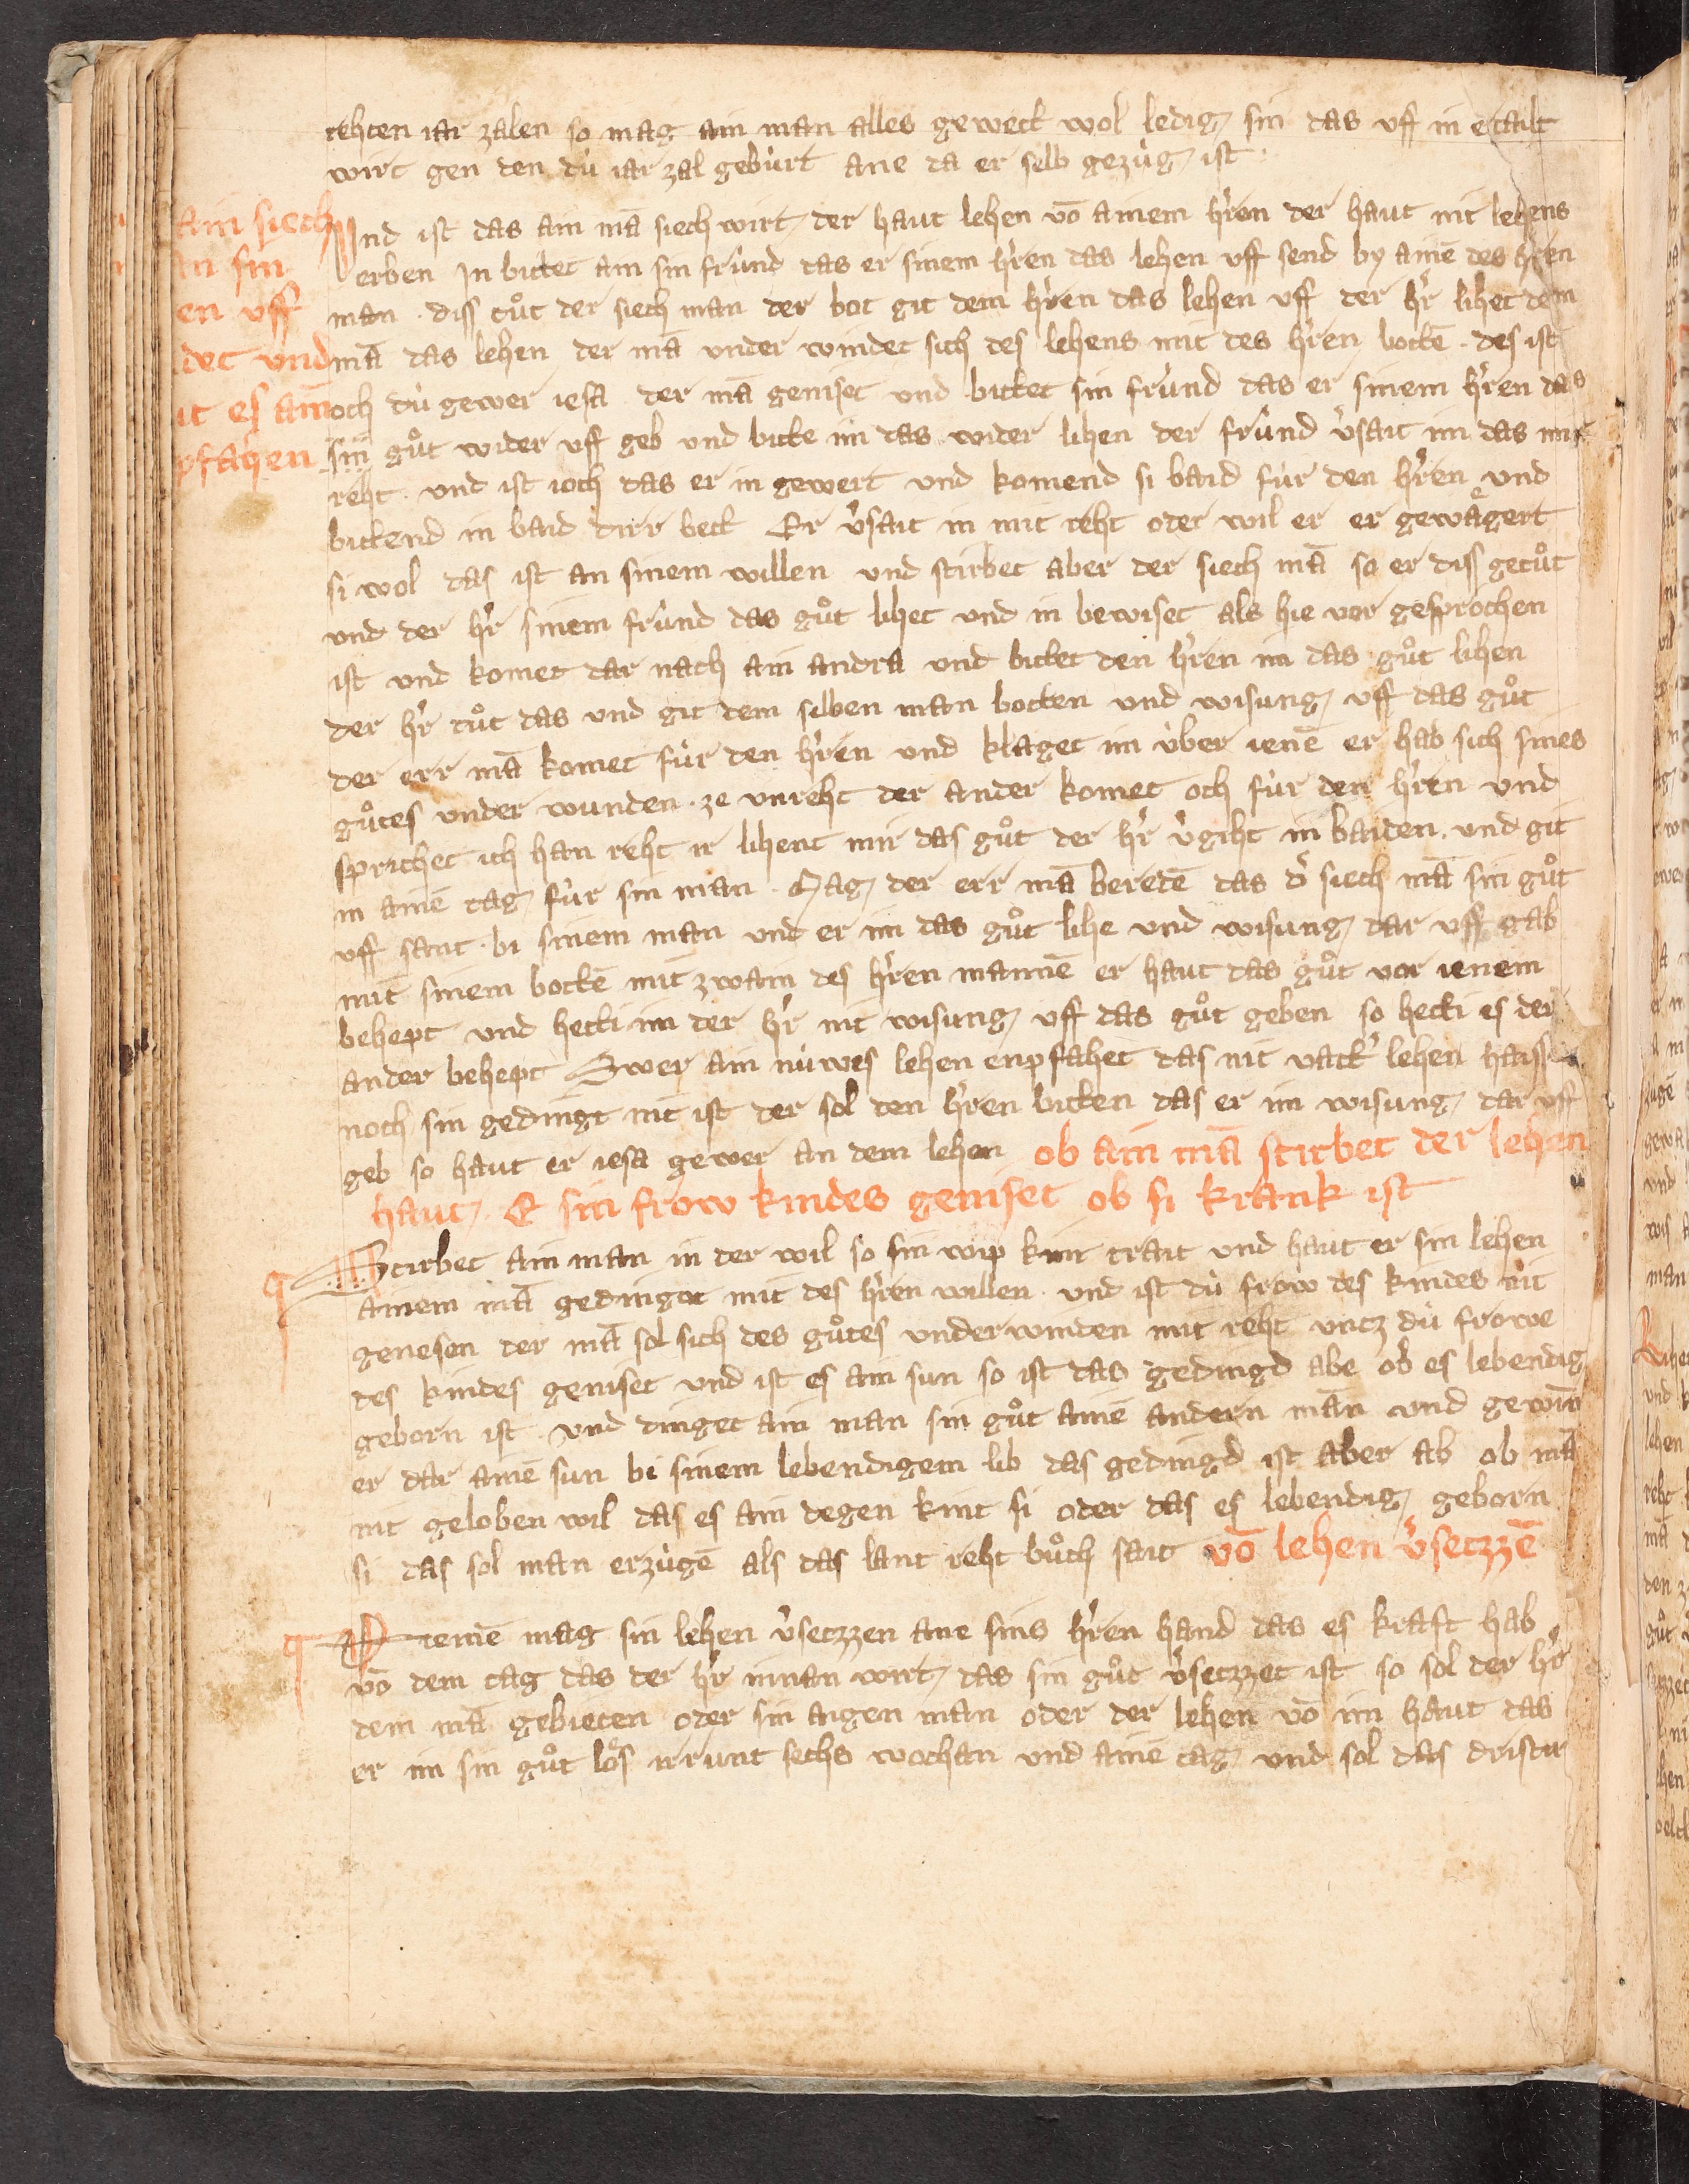 rehten iar zalen so mag ain man alles gewett wol ledig sin das vff in ertailt
wirt gen den dù iar zal gebùrt ane da er selb gezùg ist
ain siech
an sin
en vff
det vnd
it es ain
pfahen
Vnd ist das ain mā siech wirt der haut lehen vō ainem hꝛ̄en der haut nit lehens
erben In bittet ain sin frùnd das er sinem hꝛ̄en das lehen vff send by ainē des hꝛ̄en
man . diss tuͦt der siech man der bot git dem hꝛ̄en das lehen vff der hꝛ̄ lihet dem
mā das lehen der mā vnder windet sich des lehens mit des hꝛ̄en bottē . des ist
och dù gewer iesa der mā geniset vnd bittet sin frùnd das er sinem hꝛ̄en das
sin guͦt wider vff geb vnd bitte im das wider lihen der frùnd v̄sait im das mit
reht . vnd ist ioch das er in gewert vnd komend si baid fùr den hꝛ̄en vnd
bittend in baid dirr bett Er v̄sait in mit reht oder wil er er gewaͤgert
si wol das ist an sinem willen vnd stirbet aber der siech mā so er diss getuͦt
vnd der hꝛ̄ sinem frùnd das guͦt lihet vnd in bewiset als hie vor gesprochen
ist vnd komet dar nach ain andra vnd bittet den hꝛ̄en im das guͦt lihen
der hꝛ̄ tuͦt das vnd git dem selben man botten vnd wisung vff das guͦt
der err mā komet fùr den hꝛ̄en vnd klaget im ùber ienē er hab sich sines
guͦtes vnder wunden . ze vnreht der ander komet och fùr den hꝛ̄en vnd
sprichet ich han reht ir lihent mir das guͦt der hꝛ̄ v̄giht in baiden . vnd git
in ainē tag fùr sin man . Mag der err mā beredē das d̄ siech mā sin guͦt
vff sant . bi sinem man vnd er im das guͦt lihe vnd wisung dar vff gab
mit sinem bottē mit zwain des hꝛ̄en mannē er haut das guͦt vor ienem
behept vnd hetti im der hꝛ̄ nit wisung vff das guͦt geben so hetti es der
ander behept Swer ain nùwes lehen enpfahet das nit vatt̄ lehen haisset
noch sin gedingt nit ist der sol den hꝛ̄en bitten das er im wisung dar vff
geb so haut er iesa gewer an dem lehen ob ain mā stirbet der lehen
haut E sin frow kindes geniset ob si krank ist
Stirbet ain man in der wil so sin wip kint trait vnd haut er sin lehen
ainem mā gedinget mit des hꝛ̄en willen . vnd ist dù frow des kindes nit
genesen der mā sol sich des guͦtes vnderwinden mit reht vntz dù frowe
des kindes geniset vnd ist es ain sun so ist das gedingd abe ob es lebendig
geborn ist . vnd dinget ain man sin guͦt ainē andern man vnd gewin̄
er dar ainē sun bi sinem lebendigem lib das gedingd ist aber ab ob mā
nit geloben wil das es ain degen kint si oder das es lebendig geborn
si das sol man erzùgē als das lant reht buͦch sait vō lehen v̄setzzē
Niemē mag sin lehen v̄setzzen ane sins hꝛ̄en hand das es kraft hab
vō dem tag das der hꝛ̄ innan wirt das sin guͦt v̄setzzet ist so sol der hꝛ̄
dem mā gebieten oder sin aigen man oder der lehen vō im haut das
er im sin guͦt loͤs inrunt sechs wochan vnd ainē tag vnd sol das dristu